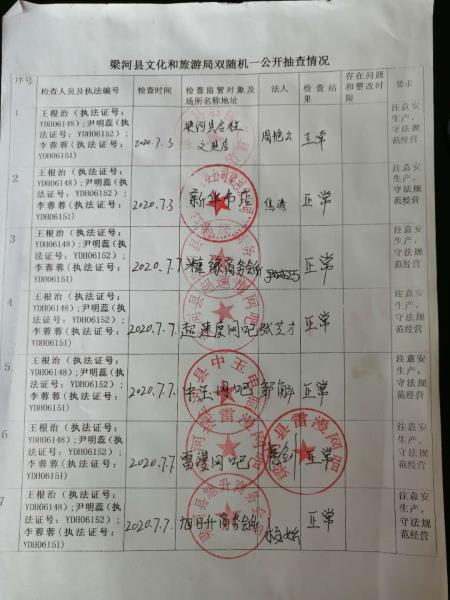 梁河县文化和旅游局双随机一公开抽查情况
序号 检查人员及执法编号 检查时间 检查监管对象及场所名称地址 法人 检查结果 存在问题和整改时限 要求
1 王根治（执法证号：YDH06148）;尹明蕊(执法证号：YDH06152）;李蓉蓉（执法证号：YDH06151) 2020.7.3 梁河县名柱文具店 周艳 正常 注意安生产，守法规范经营
2 王根治（执法证号：YDH06148）;尹明蕊(执法证号：YDH06152）;李蓉蓉（执法证号：YDH06151) 2020.7.3 新华书店 焦 正常 注意安生产，守法规范经营
3 王根治（执法证号：YDH06148）;尹明蕊(执法证号：YDH06152）;李蓉蓉（执法证号：YDH06151) 2020.7.7 缘商务会所 正常 注意安生产，守法规范经营
4 王根治（执法证号：YDH06148）;尹明蕊(执法证号：YDH06152）;李蓉蓉（执法证号：YDH06151) 2020.7.7. 超速度网吧 张芝才 正常 注意安生产，守法规范经营
5 王根治（执法证号：YDH06148）;尹明蕊(执法证号：YDH06152）;李蓉蓉（执法证号：YDH06151) 2020.7.7. 中玉网吧 邹 正常 注意安生产，守法规范经营
6 王根治（执法证号：YDH06148）;尹明蕊(执法证号：YDH06152）;李蓉蓉（执法证号：YDH06151) 2020.7.7 雷漫网吧 正常 注意安生产，守法规范经营
7 王根治（执法证号：YDH06148）;尹明蕊(执法证号：YDH06152）;李蓉蓉（执法证号：YDH06151) 2020.7.7. 旭日升商务会所 正常 注意安生产，守法规范经营